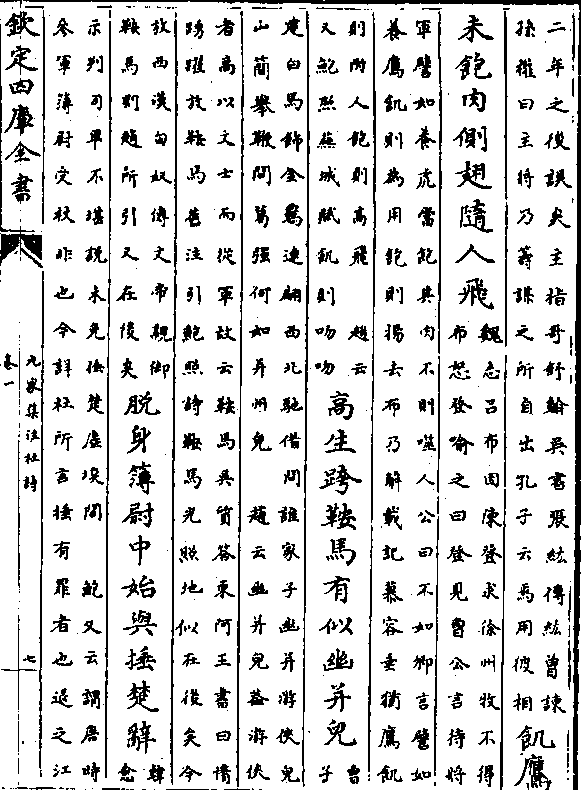 二年之後誤矣主指哥舒翰吳書張紘傳紘曾諫
孫權曰主將乃籌謀之所自出孔子云焉用彼相
飢鷹
未飽肉側翅隨人飛
魏志呂布因陳登求徐州牧不得
布怒登喻之曰登見曹公言待將
軍譬如養虎當飽其肉不則噬人公曰不如卿言譬如
養鷹飢則為用飽則揚去布乃解載記慕容垂猶鷹飢
則附人飽則高飛 趙云
又鮑照蕪城賦飢則吻吻
高生跨鞍馬有似幽并兒
曹
子
建白馬飾金羈連翩西北馳借問誰家子幽并游俠兒
山簡舉鞭問葛强何如并州兒 趙云幽并兒蓋游俠
者高以文士而從軍故云鞍馬吳質答東河王書曰情
踴躍於鞍馬舊注引鮑照詩鞍馬光照地似在後矣今
故西漢匈奴傳文帝親御
鞍馬則趙所引又在後矣
脫身簿尉中始與捶楚辭
韓
愈
示判司卑不堪說未免捶楚塵埃間 鮑又云謂唐時
參軍簿尉受杖非也今詳杜所言捶有罪者也退之江
欽定四庫全書
九家集注杜詩
卷一
七